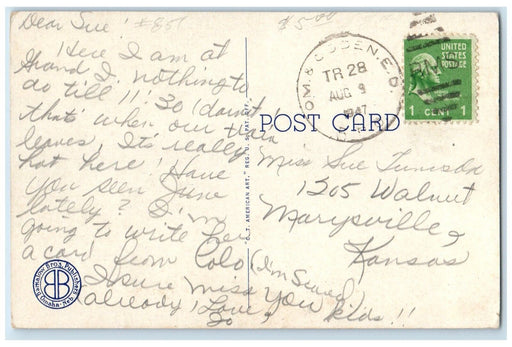 Dear Sue! #851
$5.00
Here I am at
Grand I. nothing to
do till 11:30 (darnit)
that's when our train
leaves. It's really
hot here! Have
you seen June
lately? I'm
going to write her
a card from Colo. (I'm Sure)
I sure miss you kids!!
already! Love,
Jo
OM. & OGDEN E.D.
TR 28
AUG 9
1947
R.P.O.
UNITED
STATES
POSTAGE
1 CENT 1
POST CARD
"C. T. AMERICAN ART," REG. U. S. PAT. OFF.
Miss Sue
1305 Walnut
Marysville,
Kansas
Barkalow Bros. Publishers
Omaha, Neb.
BB